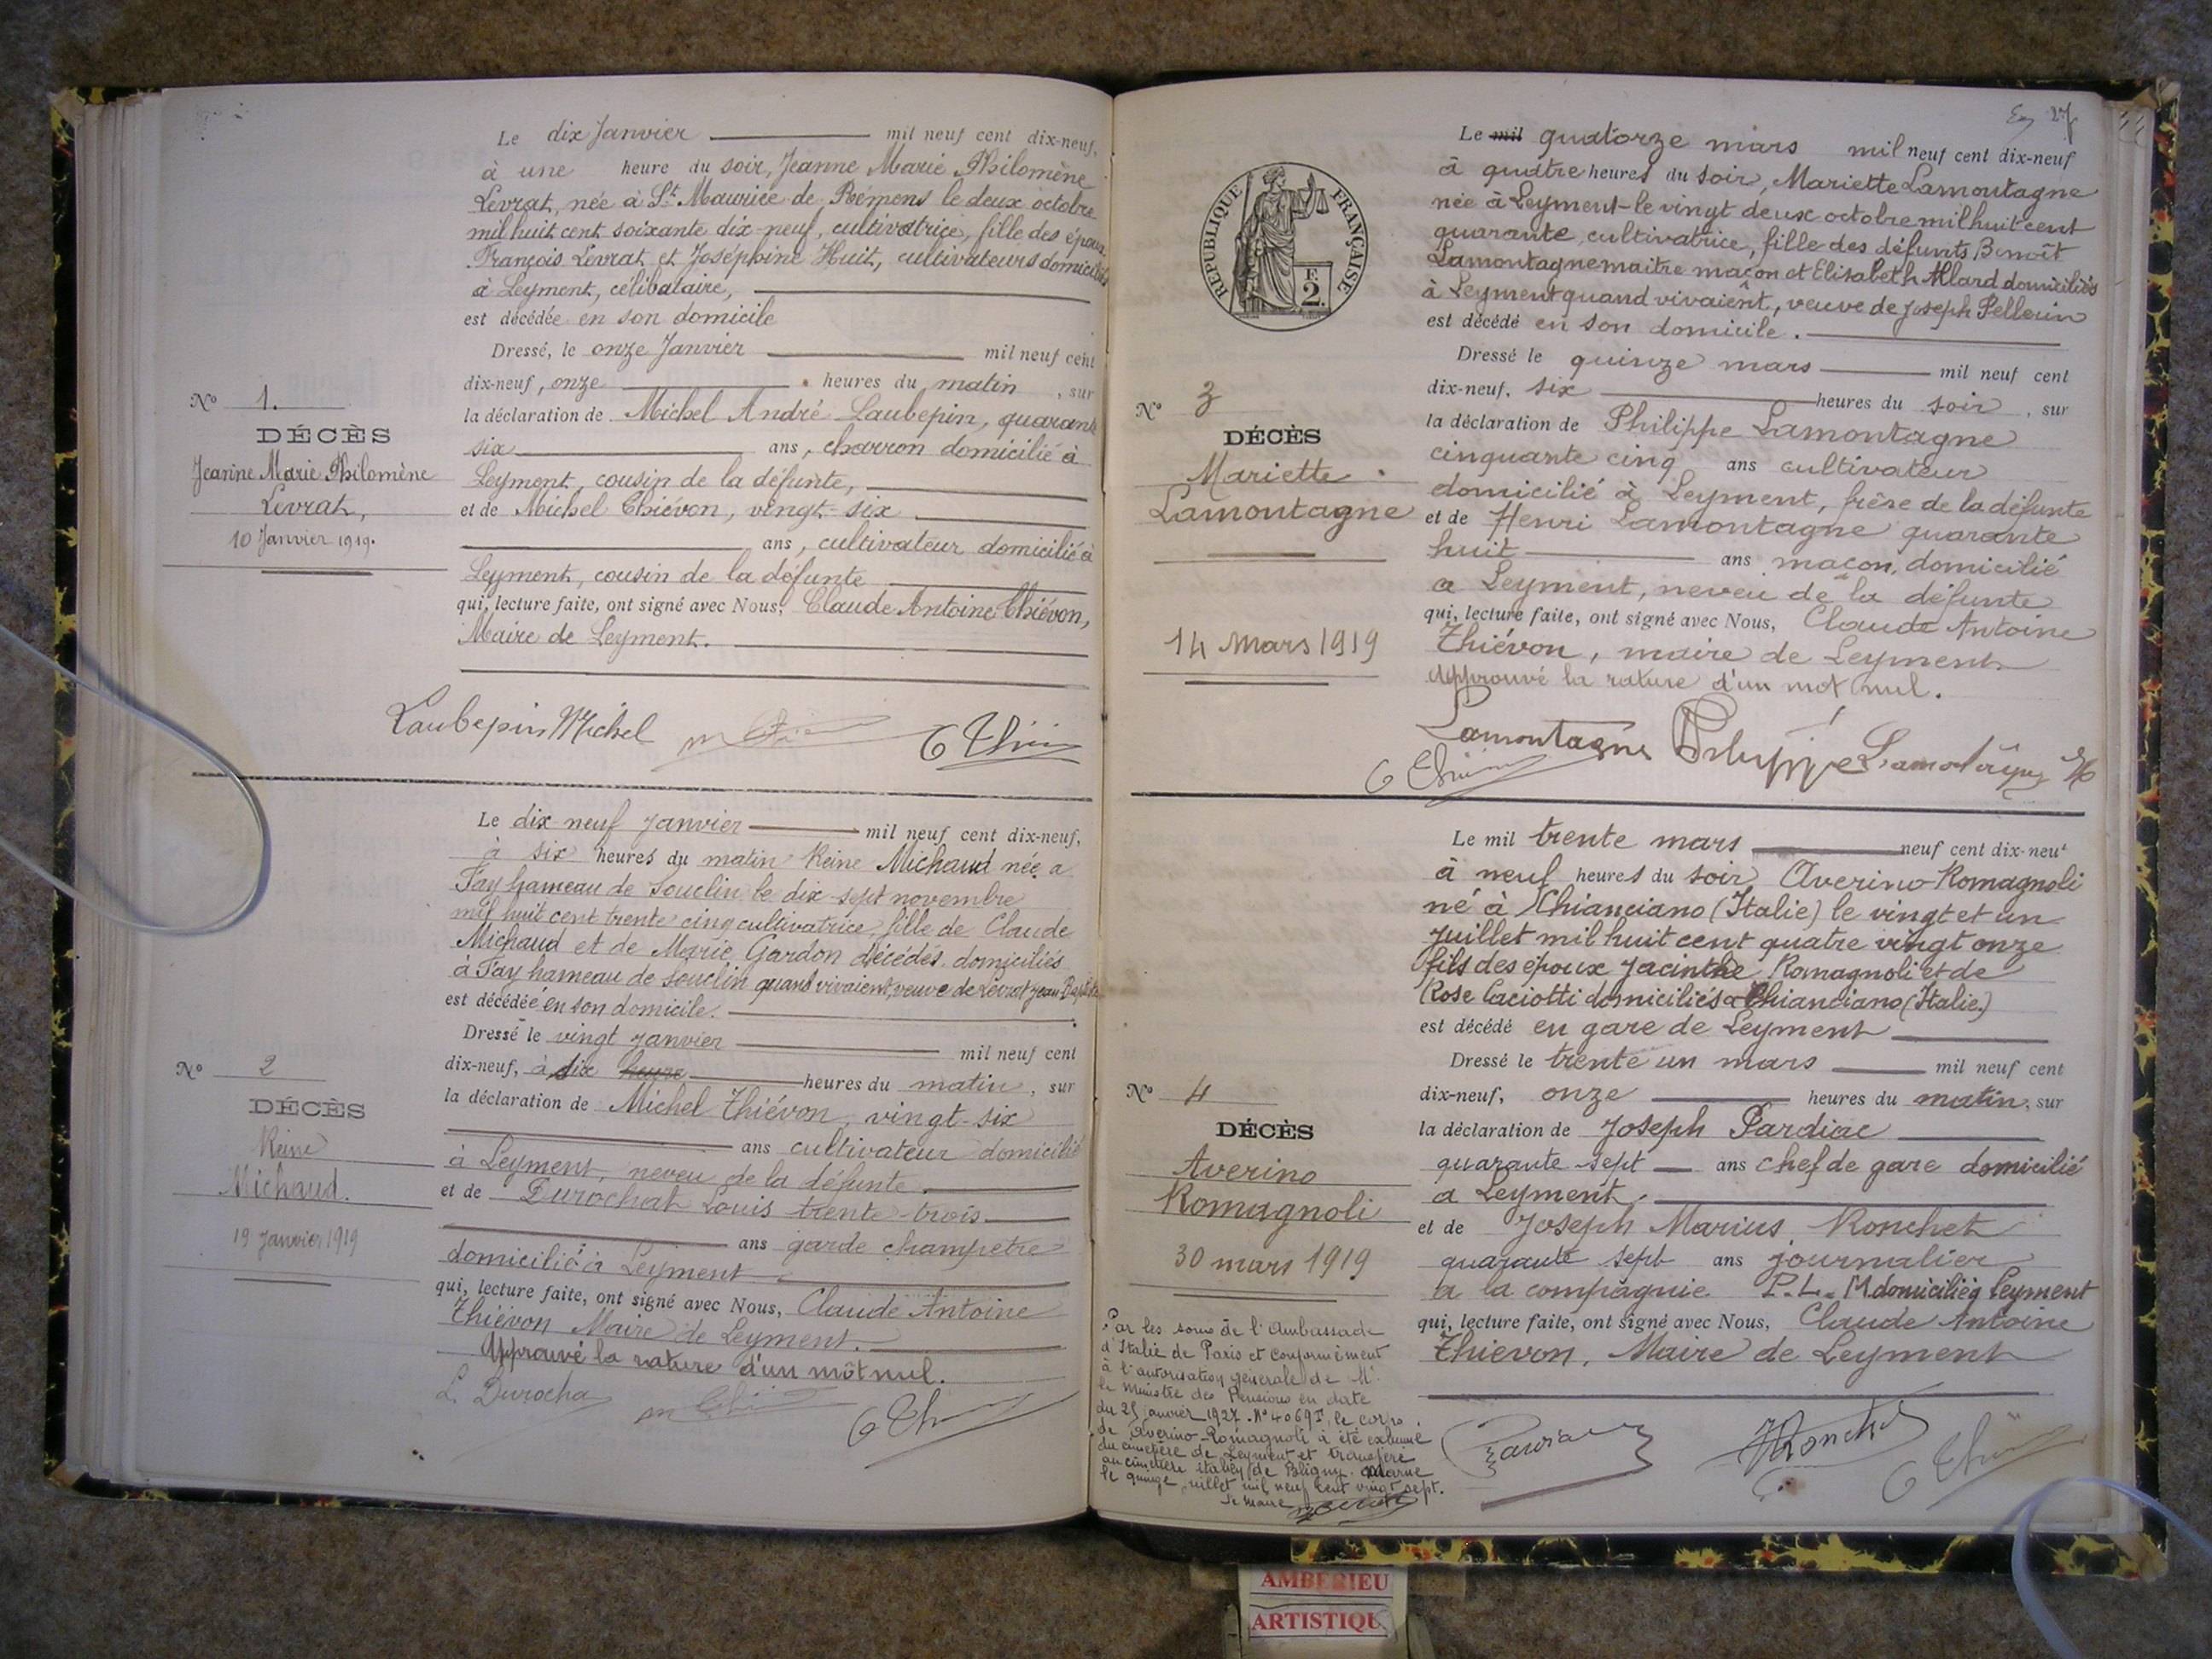 Le dix Janvier mil neuf cent dix-neuf,
à une heure du soir, Jeanne Marie Philomène
Levrat, née à St. Maurice de Rémens le deux octobre
mil huit cent soixante dix-neuf, cultivatrice, fille des époux
François Levrat et Joséphine Huit, cultivateurs domiciliés
à Leyment, célibataire,
est décédée en son domicile
Dressé, le onze Janvier mil neuf cent
dix-neuf, onze heures du matin, sur
No 1.
DÉCÈS
Jeanne Marie Philomène
Levrat,
10 Janvier 1919.
la déclaration de Michel André Laubepin, quarante
six ans, charron domicilié à
Leyment, cousin de la défunte,
et de Michel Thiévon, vingt-six
ans, cultivateur domicilié à
Leyment, cousin de la défunte
qui, lecture faite, ont signé avec Nous, Claude Antoine Thiévon,
Maire de Leyment.
Laubepin Michel
Le dix neuf Janvier mil neuf cent dix-neuf,
à six heures du matin Reine Michaud née a
Fay hameau de Souclin le dix-sept novembre
mil huit cent trente cinq cultivatrice, fille de Claude
Michaud et de Marie Gardon décédés domiciliés
à Fay hameau de Souclin quand vivaient, veuve de Levrat Jean Baptiste
est décédée en son domicile.
Dressé le vingt janvier mil neuf cent
dix-neuf, à dix heure heures du matin, sur
No 2
DÉCÈS
Reine
Michaud.
19 Janvier 1919
la déclaration de Michel Thiévon, vingt-six
ans cultivateur domicilié
à Leyment, neveu de la défunte.
et de Durochat Louis trente-trois
ans garde champetre
domicilié à Leyment
qui, lecture faite, ont signé avec Nous, Claude Antoine
Thiévon Maire de Leyment.
Approuvé la rature d'un môt nul.
L. Durocha
27
REPUBLIQUE FRANÇAISE
F.
2.
Le mil quatorze mars mil neuf cent dix-neuf
à quatre heures du soir, Mariette Lamontagne
née à Leyment le vingt deux octobre mil huit cent
quarante, cultivatrice, fille des défunts Benoît
Lamontagne maitre maçon et Elisabeth Allard domiciliés
à Leyment quand vivaient, veuve de Joseph Pellerin
est décédé en son domicile.
Dressé le quinze mars mil neuf cent
dix-neuf, six heures du soir, sur
No 3
DÉCÈS
Mariette
Lamontagne
14 Mars 1919
la déclaration de Philippe Lamontagne
cinquante cinq ans cultivateur
domicilié à Leyment, frère de la défunte
et de Henri Lamontagne quarante
huit ans maçon, domicilié
a Leyment, neveu de la défunte
qui, lecture faite, ont signé avec Nous, Claude Antoine
Thiévon, maire de Leyment
Approuvé la rature d'un mot nul.
Lamontagne
Le mil trente mars neuf cent dix-neuf
à neuf heures du soir Averino Romagnoli
né à Chianciano (Italie) le vingt et un
juillet mil huit cent quatre vingt onze
fils des époux Jacinthe Romagnoli et de
Rose Caciotti domiciliés a Chianciano (Italie)
est décédé en gare de Leyment
Dressé le trente un mars mil neuf cent
dix-neuf, onze heures du matin, sur
No 4
DÉCÈS
Averino
Romagnoli
30 mars 1919
la déclaration de Joseph Pardiac
quarante-sept ans chef de gare domicilié
a Leyment.
et de Joseph Marius Ronchet
quarante sept ans journalier
a la compagnie P.L.M domicilié a Leyment
qui, lecture faite, ont signé avec Nous, Claude Antoine
Thiévon, Maire de Leyment
Par les soins de l'Ambassade
d'Italie de Paris et conformément
à l'autorisation générale de Mr
le Ministre des Pensions en date
du 25 janvier 1927. No 4069 le corps
de Averino-Romagnoli à été exhumé
du cimetière de Leyment et transféré
au cimetière italien de Bligny Marne
le quinze juillet mil neuf cent vingt sept.
Le maire
AMBERIEU
ARTISTIQU